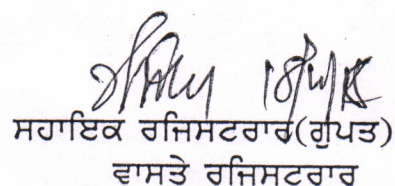 ਸਹਾਇਕ ਰਜਿਸਟਰਾਰ(ਗੁਪਤ)
ਵਾਸਤੇ ਰਜਿਸਟਰਾਰ